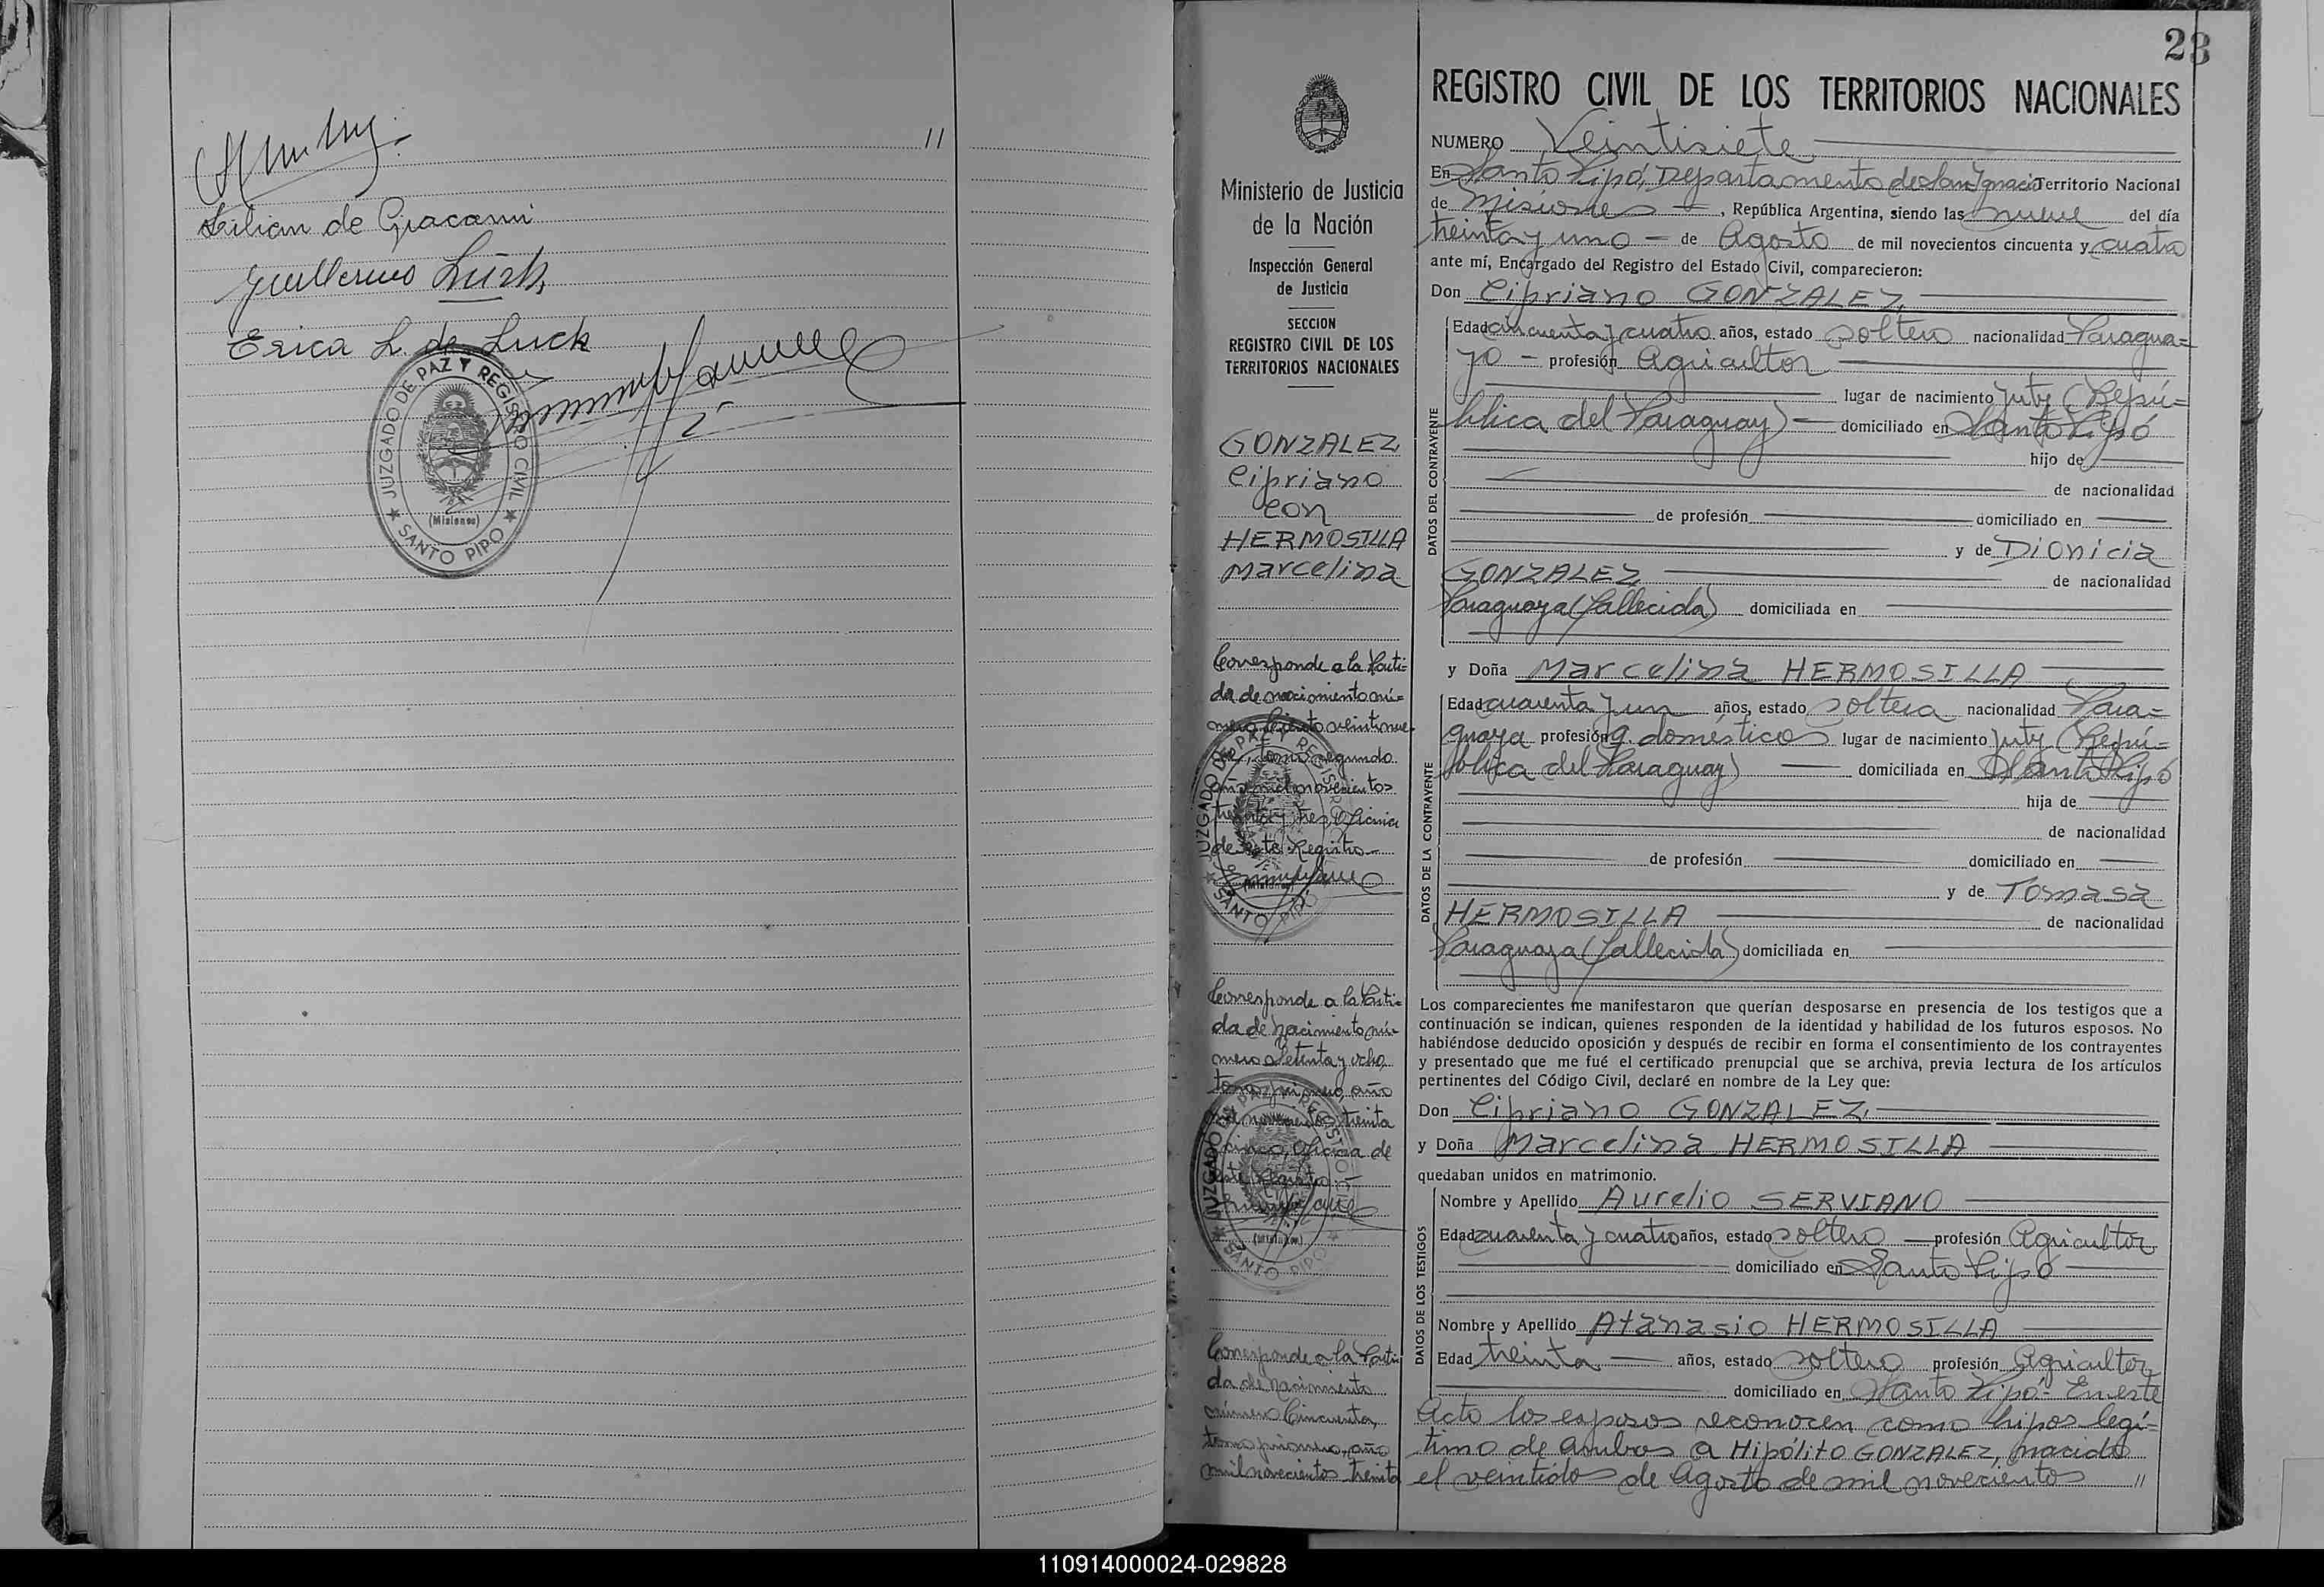 11
Lilian de Giacomi
Guillermo Lürk
Erica L. de Luck
JUZGADO DE PAZ Y REGISTRO CIVIL
(Misiones)
★ SANTO PIPO ★
23
Ministerio de Justicia
de la Nación
Inspección General
de Justicia
SECCION
REGISTRO CIVIL DE LOS
TERRITORIOS NACIONALES
GONZALEZ
Cipriano
con
HERMOSILLA
Marcelina
Corresponde a la Parti=
da de nacimiento nú=
mero Ciento veintinue
ve, tomo segundo
año mil novecientos
treinta y tres, Oficina
de este Registro
JUZGADO DE PAZ Y REGISTRO CIVIL
(Misiones)
SANTO PIPO
Corresponde a la Parti=
da de nacimiento nú=
mero Setenta y ocho,
tomo primero, año
mil novecientos treinta
y cinco, Oficina de
este Registro
JUZGADO DE PAZ Y REGISTRO CIVIL
(Misiones)
SANTO PIPO
Corresponde a la Parti
da de Nacimiento
número Cincuenta,
tomo primero, año
mil novecientos treinta
REGISTRO CIVIL DE LOS TERRITORIOS NACIONALES
NUMERO Veintisiete
En Santo Pipó, Departamento de San Ignacio Territorio Nacional
de Misiones, República Argentina, siendo las nueve del día
treinta y uno de Agosto de mil novecientos cincuenta y cuatro
ante mí, Encargado del Registro del Estado Civil, comparecieron:
Don Cipriano GONZALEZ
DATOS DEL CONTRAYENTE
Edad cincuenta y cuatro años, estado soltero nacionalidad Paragua=
yo - profesión Agricultor
lugar de nacimiento Juty (Repú=
blica del Paraguay) domiciliado en Santo Pipó
hijo de
de nacionalidad
de profesión domiciliado en
y de Dionicia
GONZALEZ de nacionalidad
Paraguaya (fallecida) domiciliada en
y Doña Marcelina HERMOSILLA
DATOS DE LA CONTRAYENTE
Edad cuarenta y un años, estado soltera nacionalidad Para=
guaya profesión q. domésticos lugar de nacimiento Juty (Repú=
blica del Paraguay) domiciliada en Santo Pipó
hija de
de nacionalidad
de profesión domiciliado en
y de Tomasa
HERMOSILLA de nacionalidad
Paraguaya (fallecida) domiciliada en
Los comparecientes me manifestaron que querían desposarse en presencia de los testigos que a
continuación se indican, quienes responden de la identidad y habilidad de los futuros esposos. No
habiéndose deducido oposición y después de recibir en forma el consentimiento de los contrayentes
y presentado que me fué el certificado prenupcial que se archiva, previa lectura de los artículos
pertinentes del Código Civil, declaré en nombre de la Ley que:
Don Cipriano GONZALEZ
y Doña Marcelina HERMOSILLA
quedaban unidos en matrimonio.
DATOS DE LOS TESTIGOS
Nombre y Apellido Aurelio SERVIANO
Edad cuarenta y cuatro años, estado soltero profesión Agricultor
domiciliado en Santo Pipó
Nombre y Apellido Atanasio HERMOSILLA
Edad treinta años, estado soltero profesión Agricultor
domiciliado en Santo Pipó - En este
Acto los esposos reconocen como hijos legí=
timo de ambos a Hipólito GONZALEZ, nacido
el veintidos de Agosto de mil novecientos 11
110914000024-029828